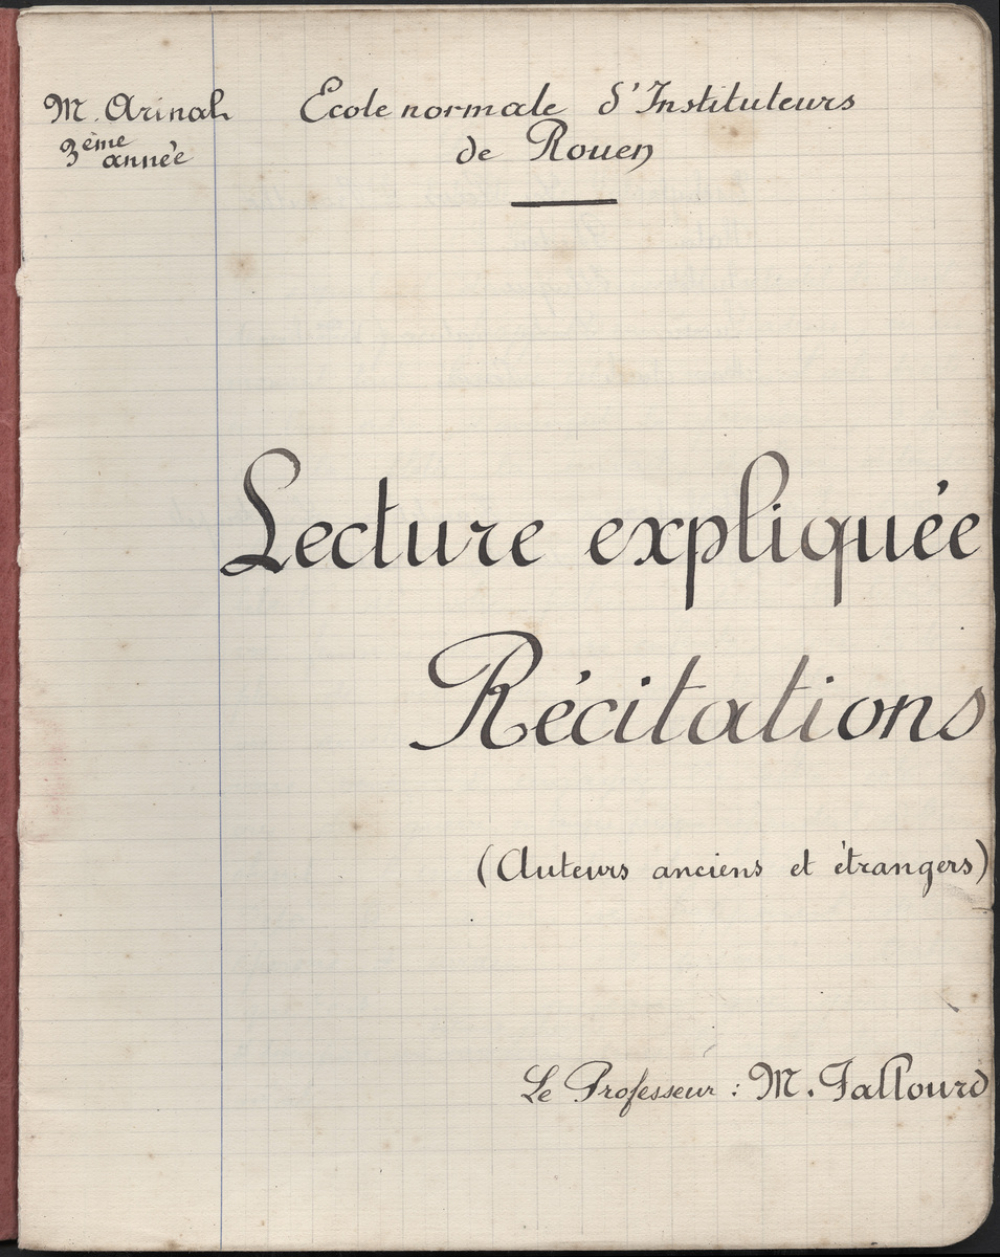 M. Arinal
3ème
année
Ecole normale d'Instituteurs
de Rouen
Lecture expliquée
Récitations
(Auteurs anciens et étrangers)
Le Professeur : M. Fallourd